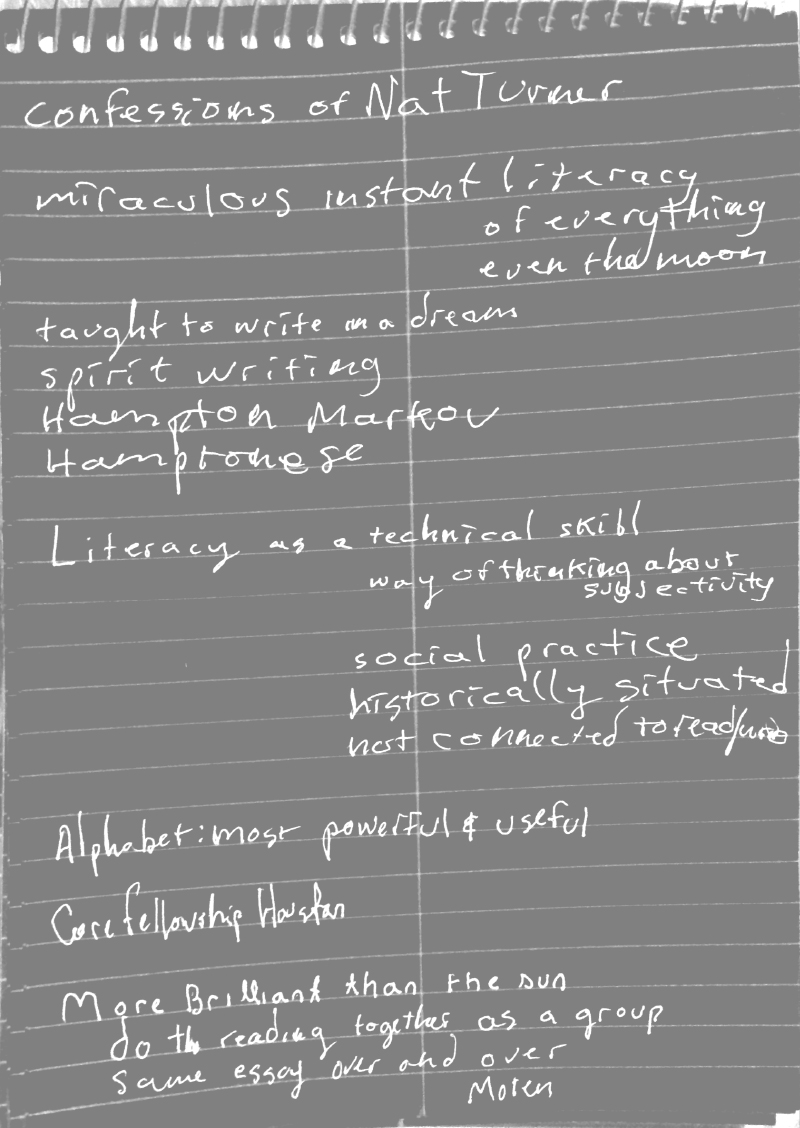 Confessions of Nat Turner
miraculous instant literacy
of everything
even the moon
taught to write in a dream
spirit writing
Hampton Markov
Hamptonese
Literacy as a technical skill
way of thinking about
subjectivity
social practice
historically situated
not connected to read/
Alphabet: most powerful & useful
Core fellowship Houston
More Brilliant than the sun
do the reading together as a group
same essay over and over
Moten